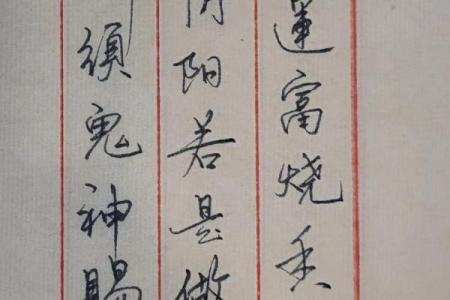 富烧香
阴阳若是做
須鬼神賜